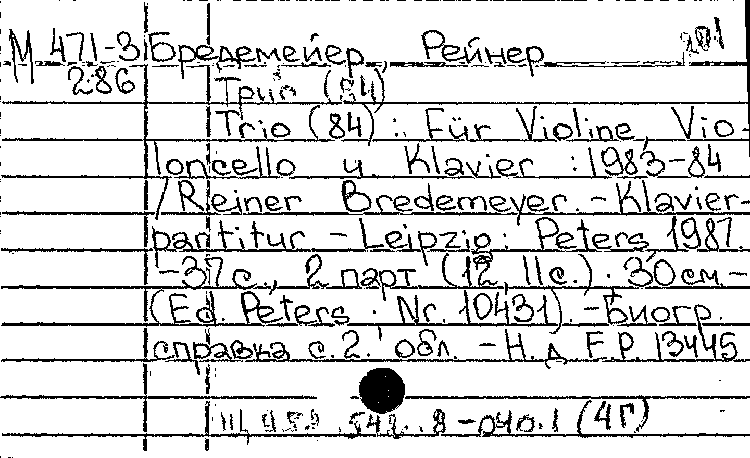 М 471-3 Бредемейер, Рейнер 201
286 Трио (84)
Trio (84) : Für Violine, Vio-
loncello u. Klavier : 1983-84
/ Reiner Bredemeyer. - Klavier-
partitur - Leipzig : Peters, 1987.
- 37 с., 2 парт. (12, 11 с.) . 30 см -
(Ed. Peters . Nr. 10431). - Биогр.
справка с. 2. обл. - Н. д E.P. 13445
8 - 040.1 (4Г)